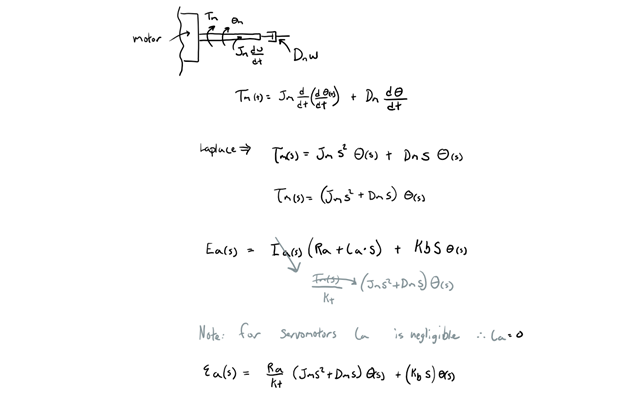 Tm θm
motor
Jm dω/dt
Dm ω
Tm(t) = Jm d/dt (dθ(t)/dt) + Dm dθ/dt
Laplace ⇒ Tm(s) = Jm s² θ(s) + Dm s θ(s)
Tm(s) = (Jm s² + Dm s) θ(s)
Ea(s) = Ia(s) (Ra + La·s) + Kb s θ(s)
Tm(s)/Kt → (Jm s² + Dm s) θ(s)
Note: for servomotors La is negligible ∴ La = 0
Ea(s) = Ra/Kt (Jm s² + Dm s) θ(s) + (Kb s) θ(s)